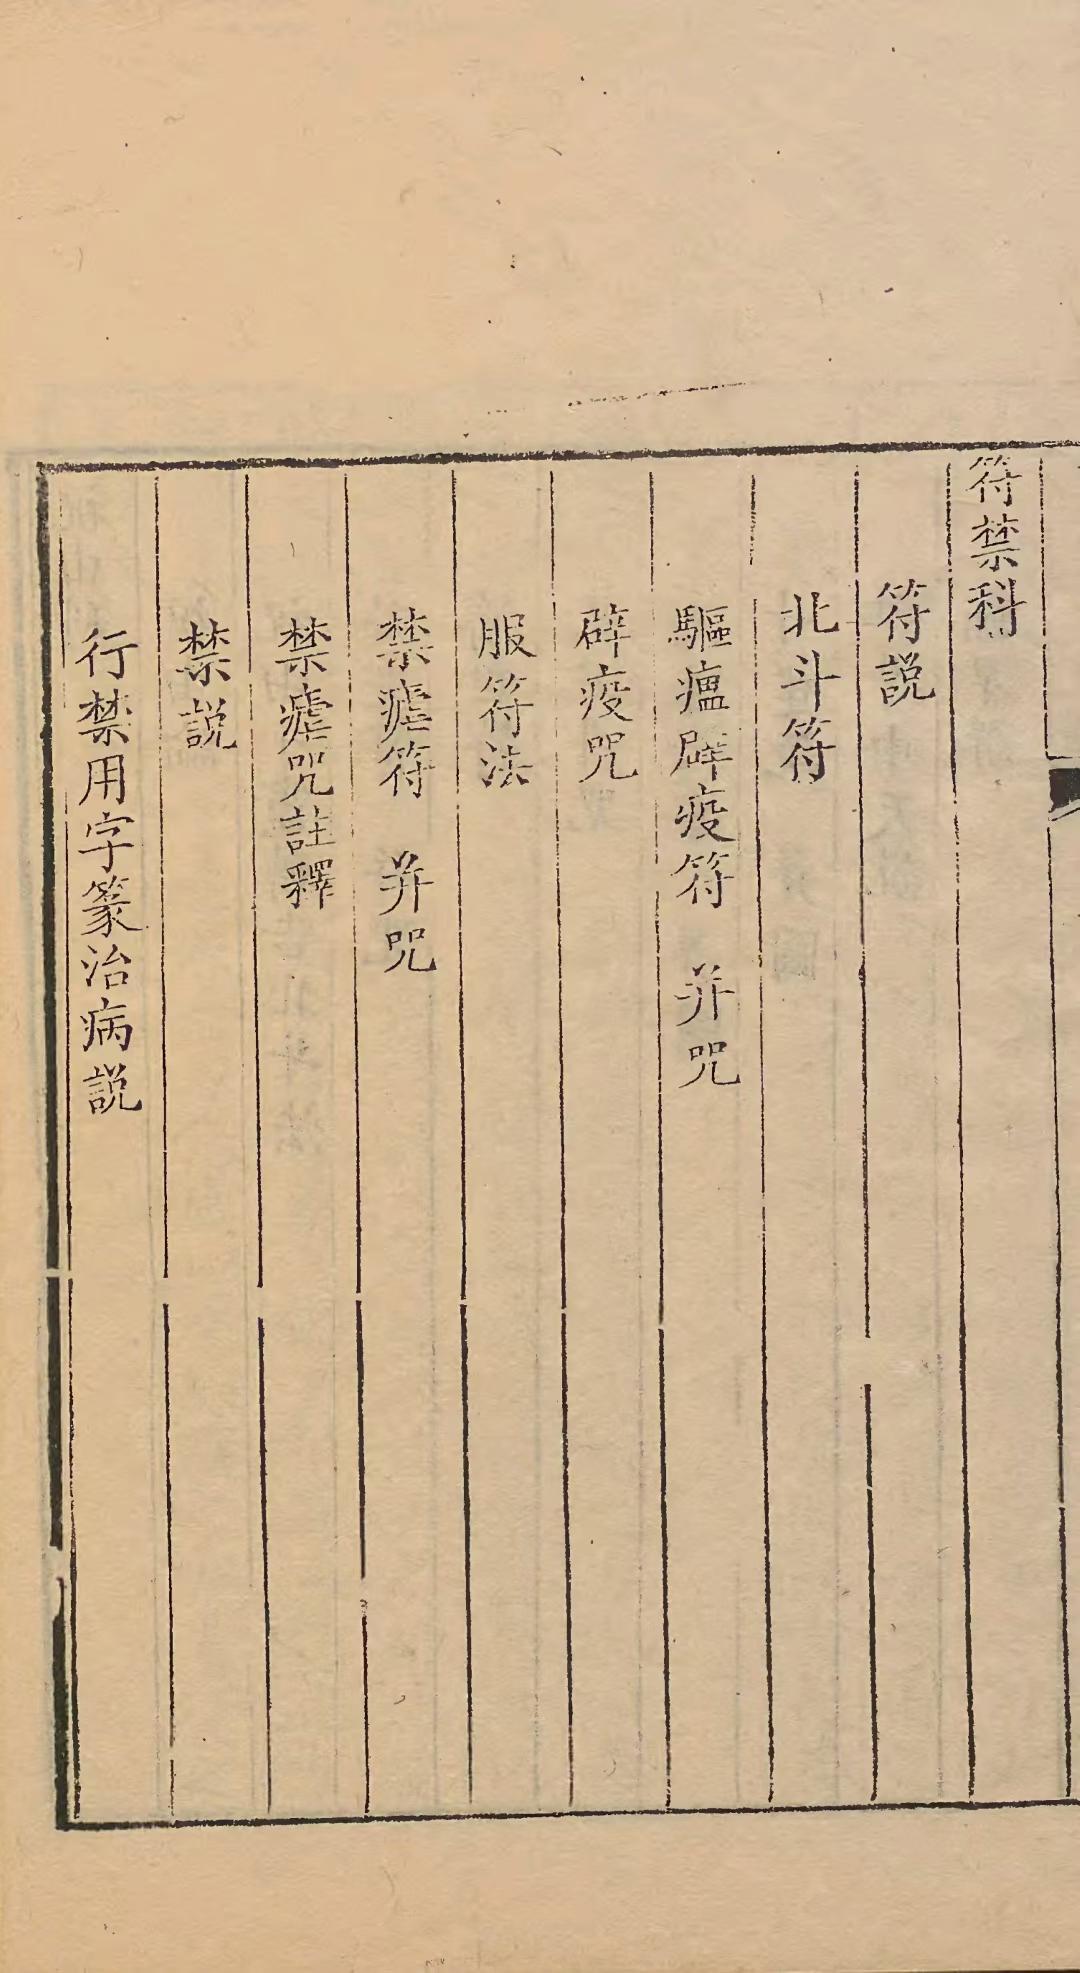 符禁科
符説
北斗符
驅瘟辟疫符 并咒
辟疫咒
服符法
禁瘧符 并咒
禁瘧咒註釋
禁説
行禁用字篆治病説